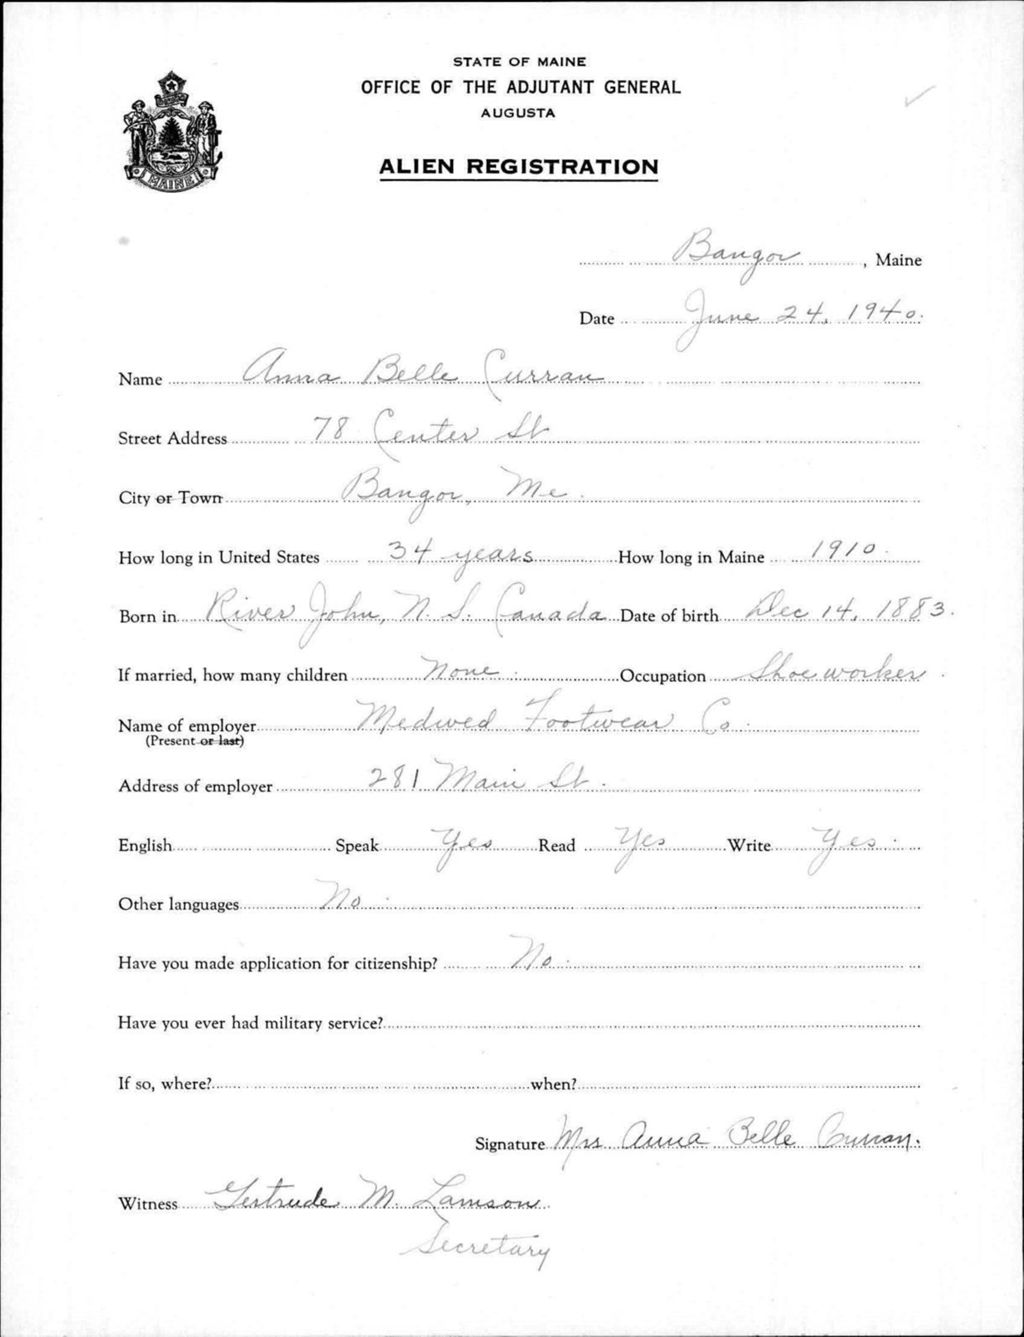 STATE OF MAINE
OFFICE OF THE ADJUTANT GENERAL
AUGUSTA
ALIEN REGISTRATION
MAINE
Bangor, Maine
Date June 24, 1940.
Name Anna Belle Curran
Street Address 78 Center St
City or Town Bangor, Me.
How long in United States 34 years How long in Maine 1910.
Born in River John, N. S. Canada Date of birth Dec 14, 1883.
If married, how many children None. Occupation Shoe worker.
Name of employer Medwed Footwear Co.
(Present or last)
Address of employer 281 Main St.
English Speak Yes Read Yes Write Yes.
Other languages No.
Have you made application for citizenship? No.
Have you ever had military service?
If so, where? when?
Signature Mrs Anna Belle Curran.
Witness Gertrude M. Lamson
Secretary